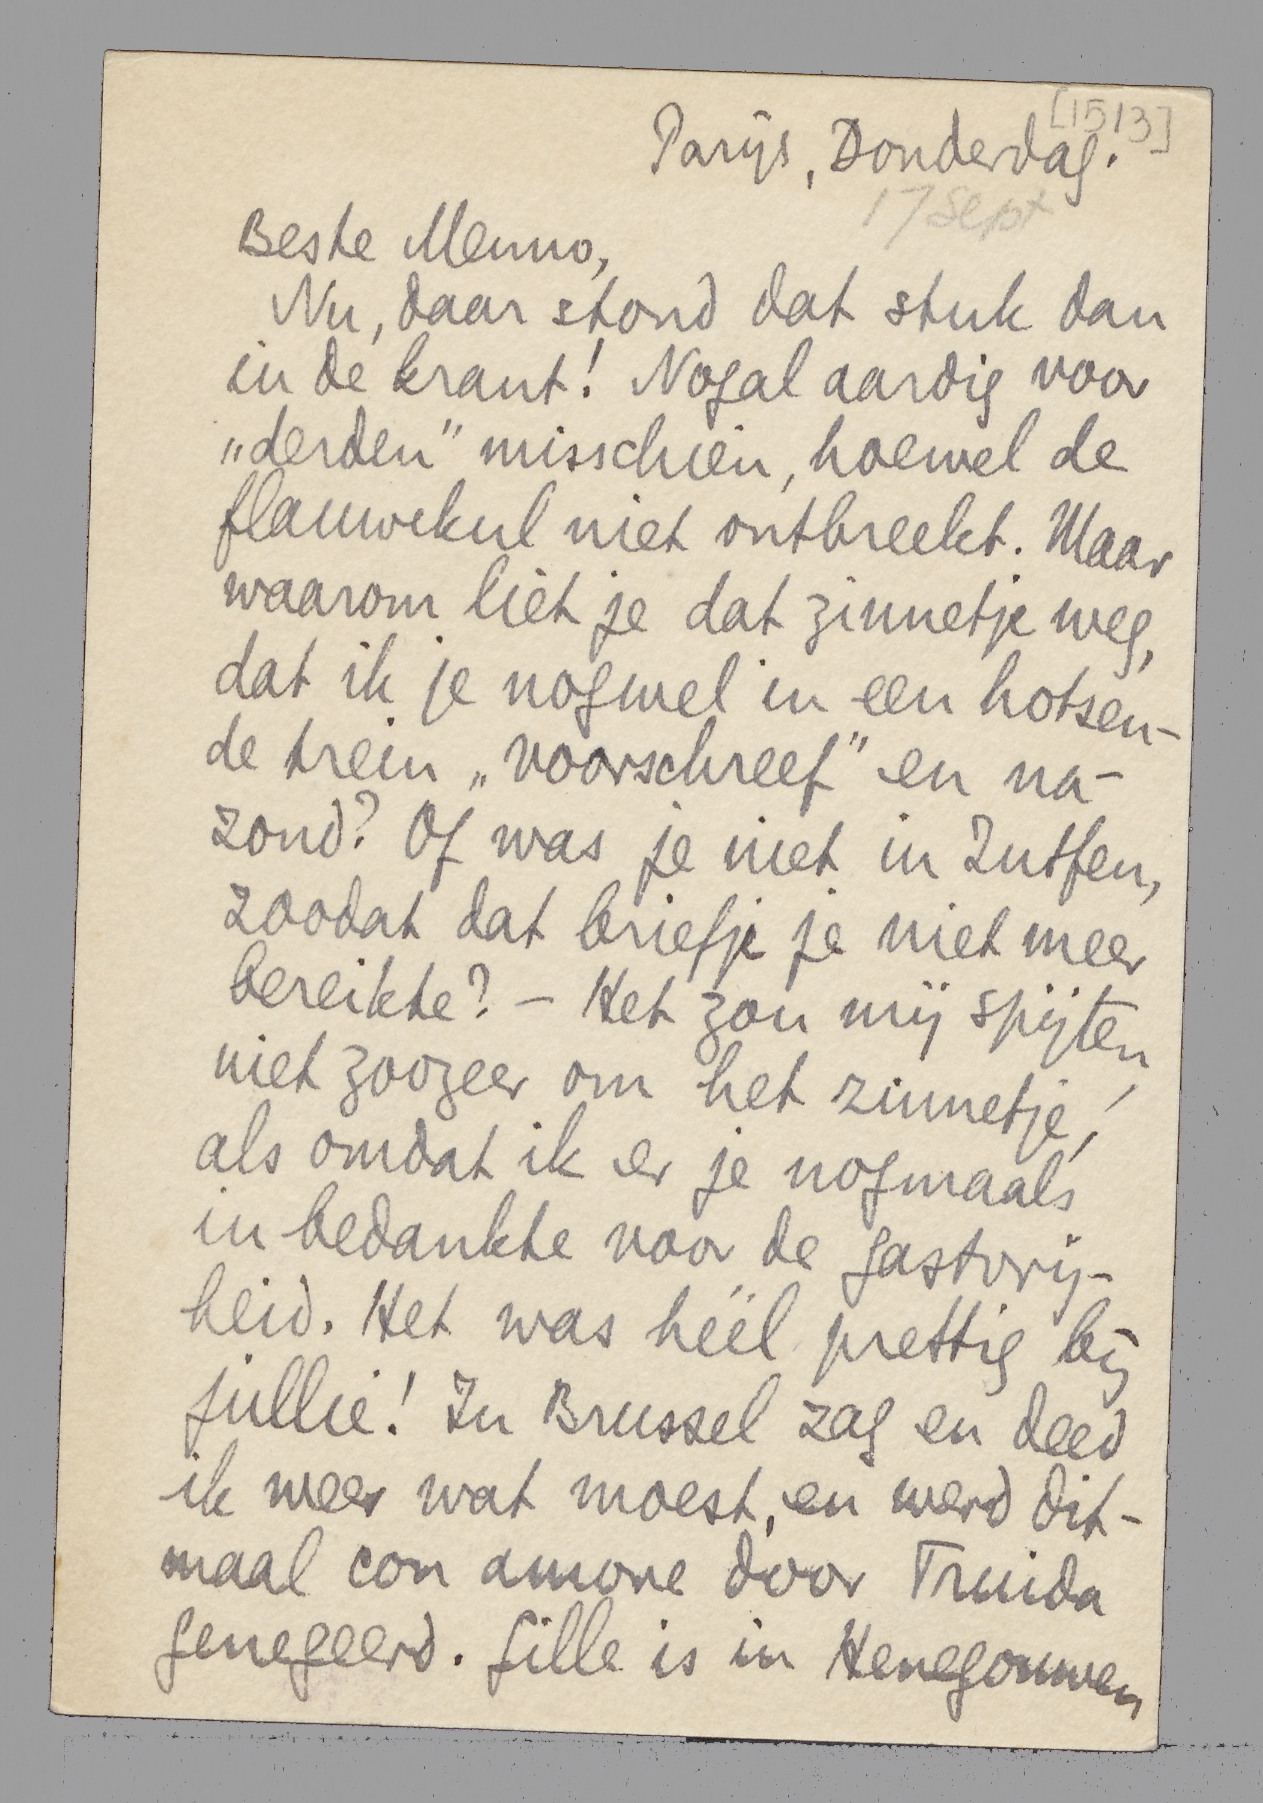 [1513]
Parijs, Donderdag.
17 Sept
Beste Menno,
Nu, daar stond dat stuk dan
in de krant! Nogal aardig voor
„derden” misschien, hoewel de
flauwekul niet ontbreekt. Maar
waarom liet je dat zinnetje weg,
dat ik je nogwel in een hotsen-
de trein „voorschreef” en na-
zond? Of was je niet in Zutfen,
zoodat dat briefje je niet meer
bereikte? – Het zou mij spijten,
niet zoozeer om het zinnetje,
als omdat ik er je nogmaals
in bedankte voor de gastvrij-
heid. Het was héél prettig bij
jullie! In Brussel zag en deed
ik weer wat moest, en werd dit-
maal con amore door Truida
genegeerd. Gille is in Henegouwen